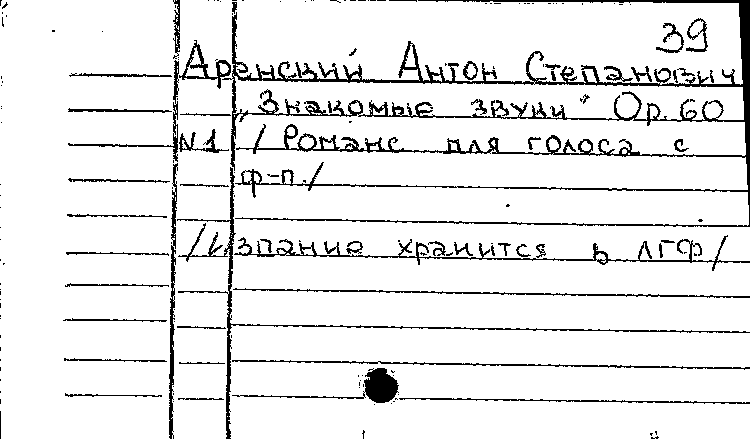 39
Аренский Антон Степанович
„Знакомые звуки" Ор. 60
N 1 / Романс для голоса с
ф-п./
/Издание хранится в ЛГФ/